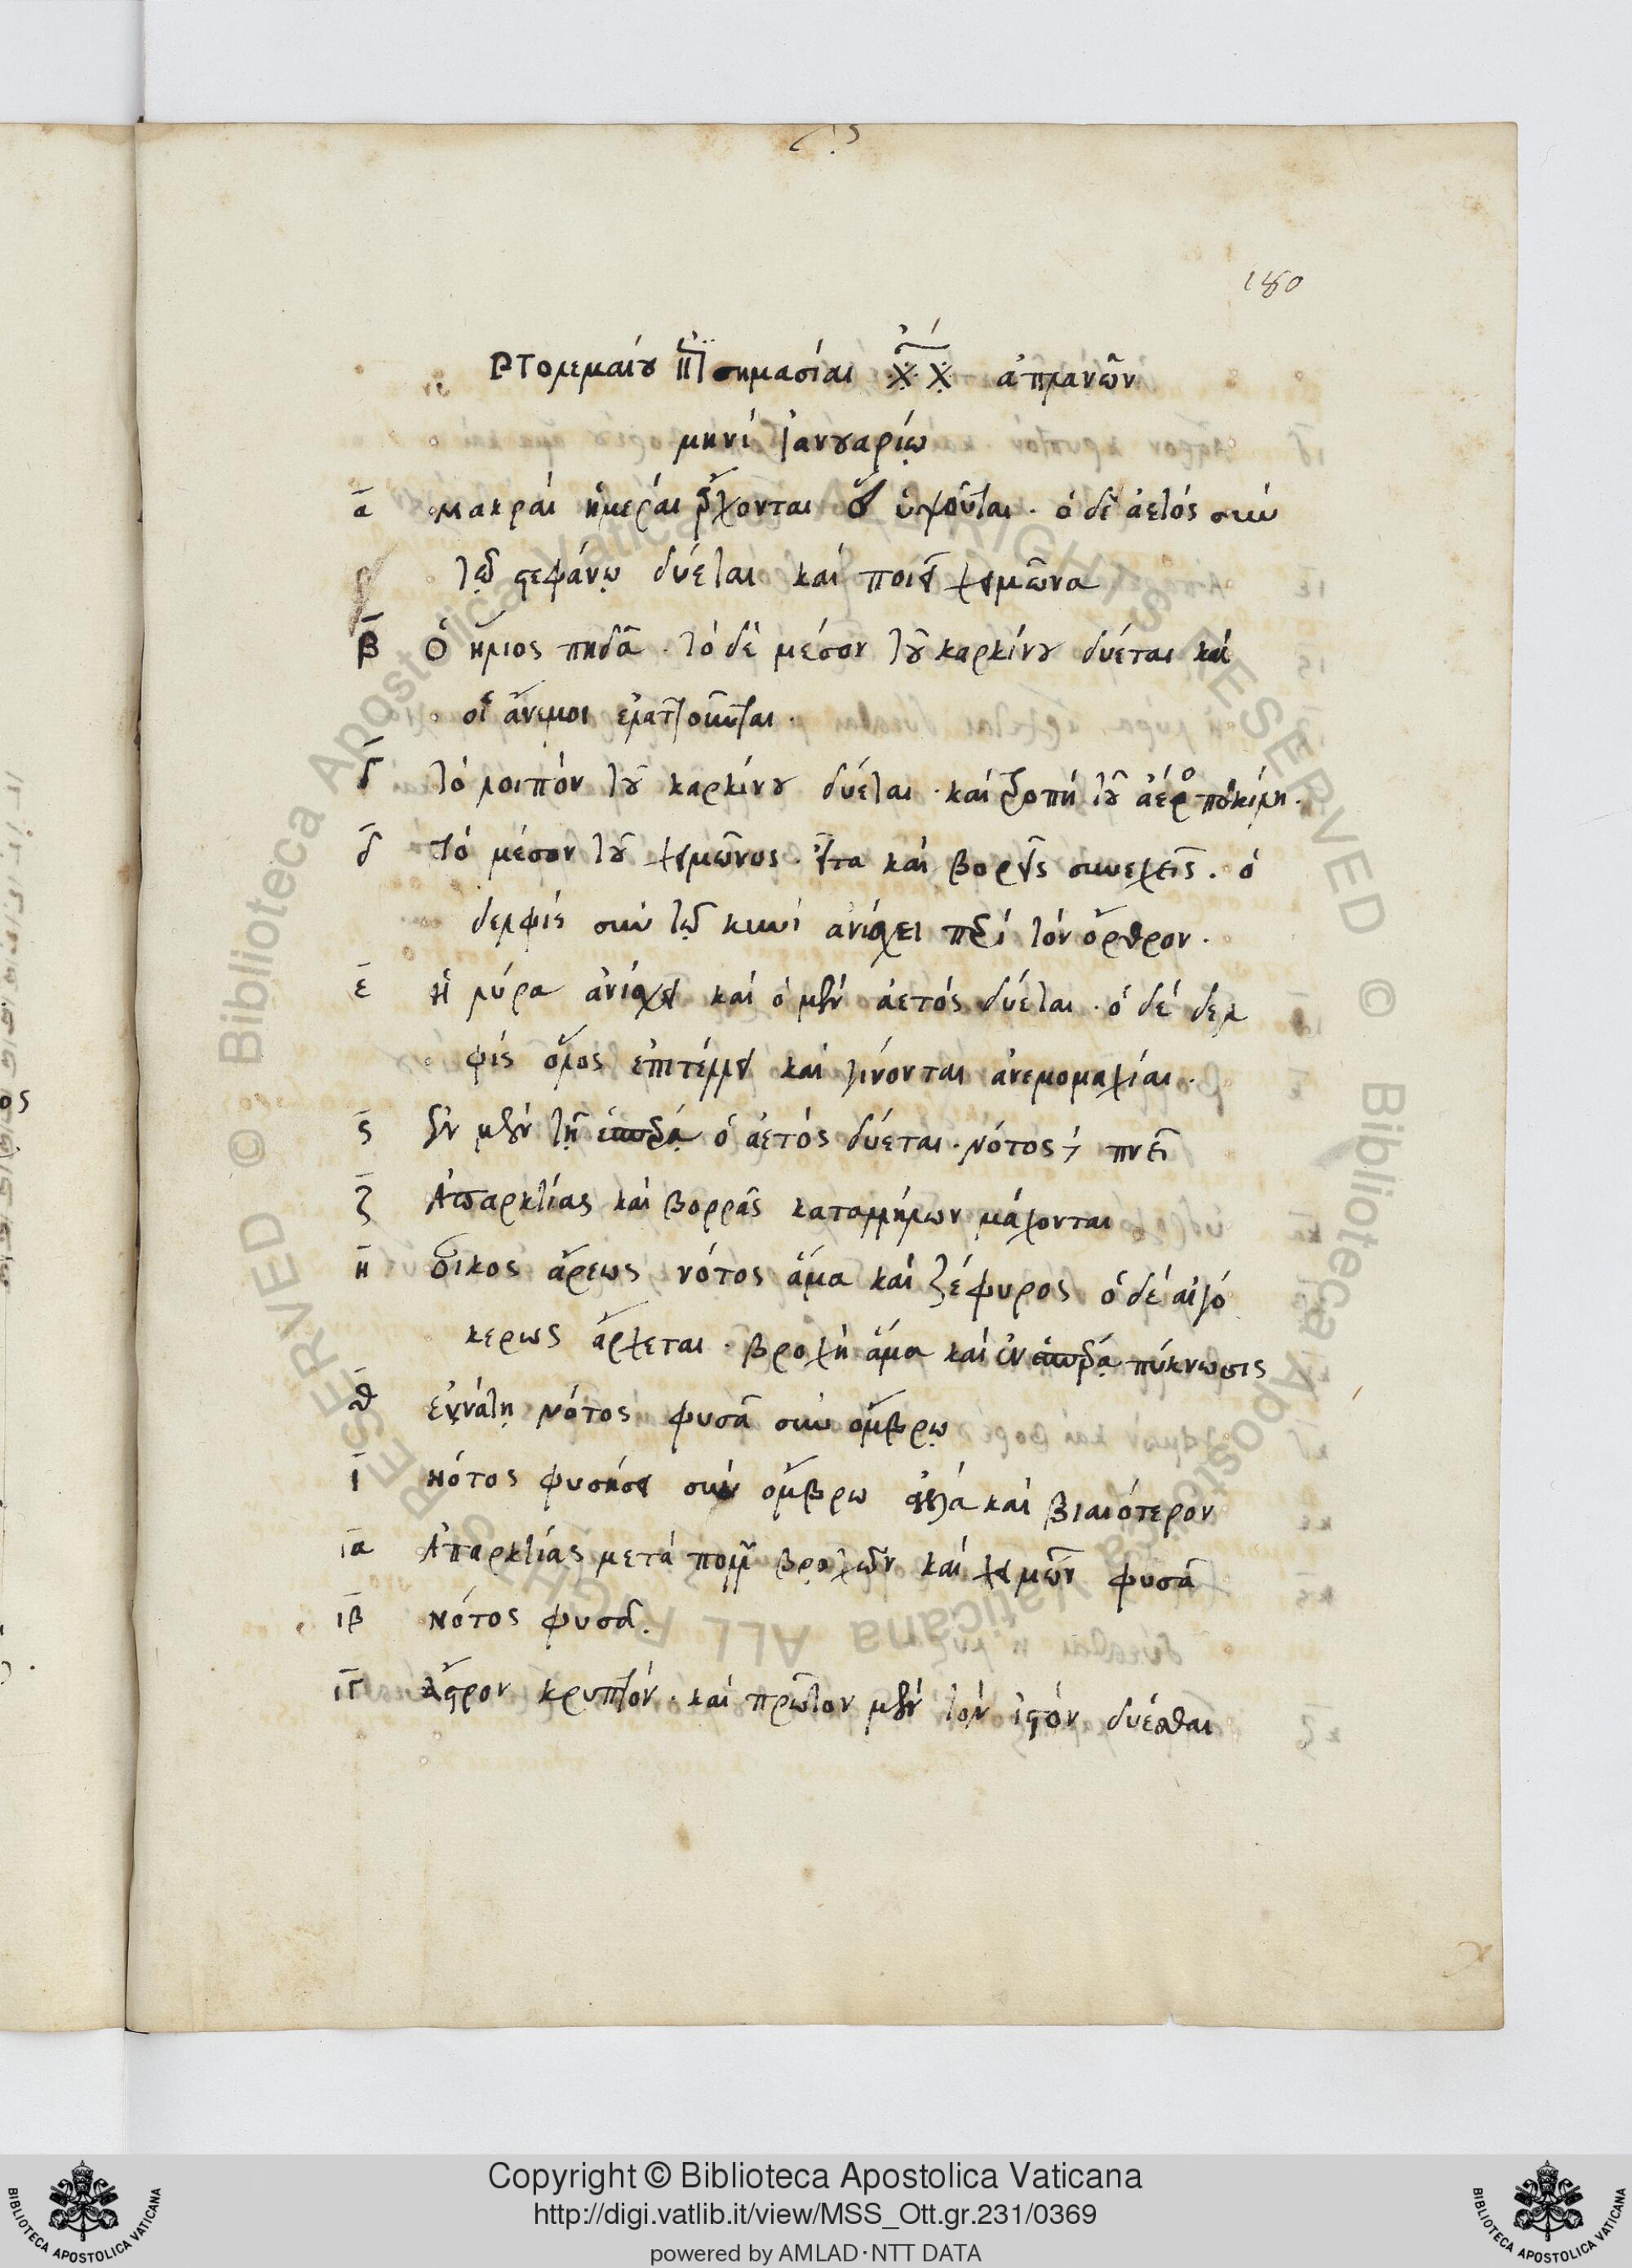 180
Πτολεμαίου ἐπισημασίαι ἀπλανῶν
μηνὶ Ἰανουαρίῳ
α Μακραὶ ἡμέραι ἄρχονται ὑψοῦται · ὁ δὲ ἀετός σὺν
τῷ στεφάνῳ δύεται καὶ ποιεῖ χειμῶνα
β Ὁ ἥλιος πηδᾶ · τὸ δὲ μέσον τοῦ καρκίνου δύεται καὶ
οἱ ἄνεμοι ἐλαττοῦνται ·
γ τὸ λοιπὸν τοῦ καρκίνου δύεται · καὶ τροπὴ τοῦ ἀέρο ποικίλη ·
δ τὸ μέσον τοῦ χειμῶνος · εἶτα καὶ βορεῖς συνεχεῖς · ὁ
δελφίς σὺν τῷ κυνὶ ἀνίσχει περὶ τὸν ὄρθρον ·
ε ἡ λύρα ἀνίσχει καὶ ὁ μὲν ἀετός δύεται · ὁ δὲ δελ
φίς ὅλος ἐπιτέλλει καὶ γίνονται ἀνεμομαχίαι ·
ς ἐν μὲν τῇ ἑσπέρᾳ ὁ ἀετός δύεται · νότος δὲ πνεῖ
ζ Ἀπαρκτίας καὶ βορρᾶς καταλλήλων μάχονται
η οἶκος ἄρεως νότος ἅμα καὶ ζέφυρος ὁ δὲ αἰγό
κερως ἄρχεται · βροχὴ ἅμα καὶ ἐν ἑσπέρᾳ πύκνωσις
θ ἐννάτῃ νότος φυσᾶ σὺν ὄμβρῳ
ι νότος φυσήσει σὺν ὄμβρω καὶ βιαιότερον
ια Ἀπαρκτίας μετὰ πολλῶν βροχῶν καὶ χειμῶν φυσᾶ
ιβ νότος φυσᾶ.
ιγ ἄστρον κρυπτόν · καὶ πρῶτον μὲν τὸν ἱστόν δύεσθαι
© Biblioteca Apostolica Vaticana ALL RIGHTS RESERVED
Copyright © Biblioteca Apostolica Vaticana
http://digi.vatlib.it/view/MSS_Ott.gr.231/0369
powered by AMLAD·NTT DATA
BIBLIOTECA APOSTOLICA VATICANA
BIBLIOTECA APOSTOLICA VATICANA